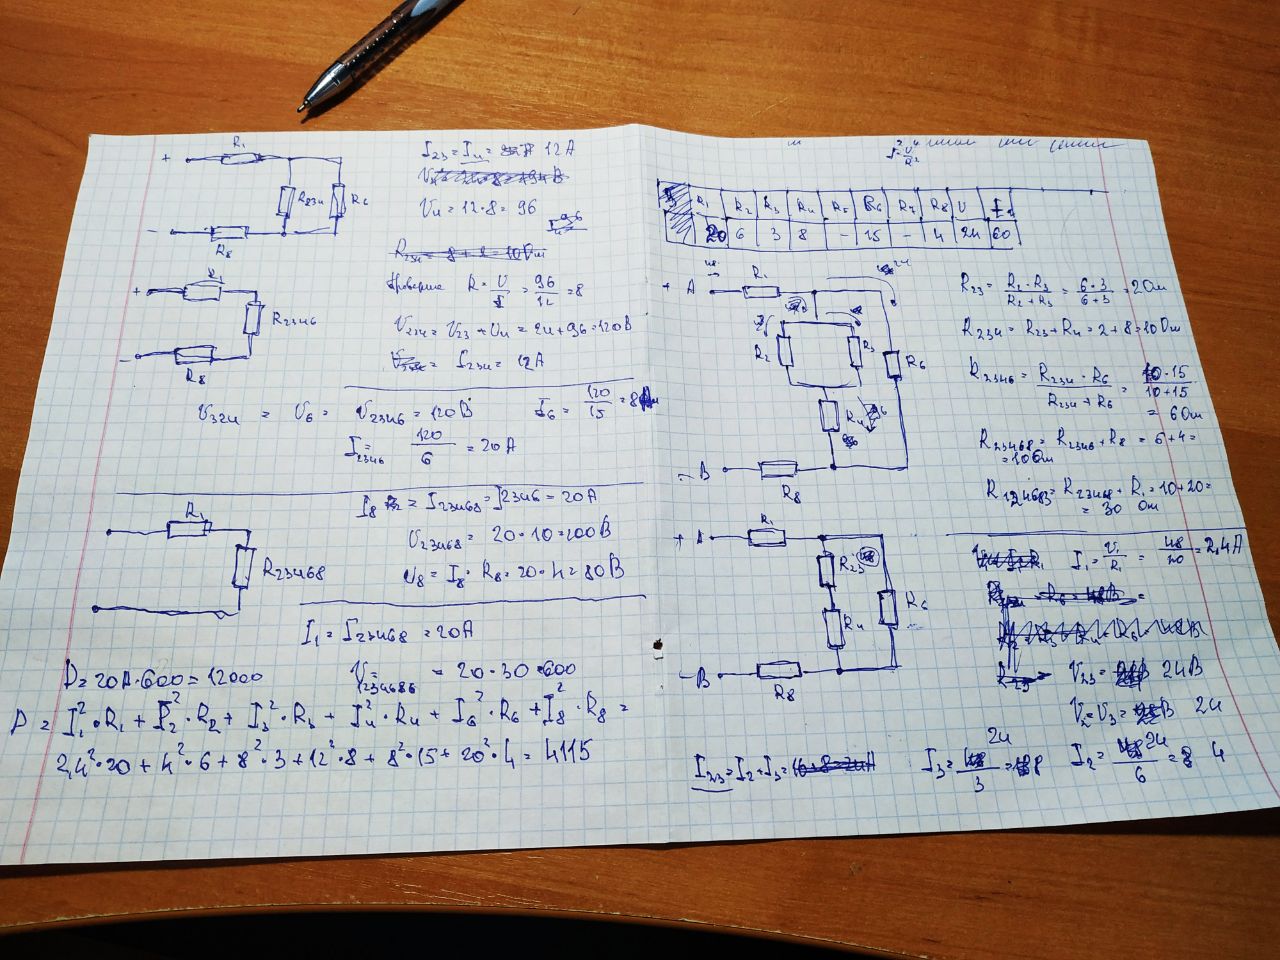 R₁
+
R₂₃₄
R₆
−
R₈
I₂₃ = I₄ = 12A
U₄ = 12·8 = 96
Проверка R = U/I = 96/12 = 8
U₂₃₄ = U₂₃ + U₄ = 24+96 = 120В
I₂₃₄ = 12А
R₁
+
R₂₃₄₆
−
R₈
U₃₂₄ = U₆ = U₂₃₄₆ = 120В
I₆ = 120/15 = 8
I₂₃₄₆ = 120/6 = 20А
R₁
R₂₃₄₆₈
I₈ = I₂₃₄₆₈ = I₂₃₄₆ = 20А
U₂₃₄₆₈ = 20·10=200В
U₈ = I₈·R₈ = 20·4 = 80В
I₁ = I₂₃₄₆₈ = 20А
P = 20А·600 = 12000
= 20·30=600
P = I₁²·R₁ + I₂²·R₂ + I₃²·R₃ + I₄²·R₄ + I₆²·R₆ + I₈²·R₈ =
2,4²·20 + 4²·6 + 8²·3 + 12²·8 + 8²·15 + 20²·4 = 4115
R₁ R₂ R₃ R₄ R₅ R₆ R₇ R₈ U
20 6 3 8 − 15 − 4 24 60
+ A
R₁
R₂
R₃
R₆
R₄
− B
R₈
R₂₃ = R₂·R₃/R₂+R₃ = 6·3/6+3 = 2Ом
R₂₃₄ = R₂₃+R₄ = 2+8=10Ом
R₂₃₄₆ = R₂₃₄·R₆/R₂₃₄+R₆ = 10·15/10+15
= 6Ом
R₂₃₄₆₈ = R₂₃₄₆+R₈ = 6+4=
=10Ом
R₂₃₄₆₈ + R₁ = 10+20=
= 30 Ом
+ A
R₁
R₂₃
R₄
R₆
− B
R₈
I₁ = U₁/R₁ = 48/20 = 2,4А
U₂₃ = 24В
U₂=U₃ = 24
I₂₃ = I₂+I₃ =
I₃ = 24/3 = 8
I₂ = 24/6 = 4